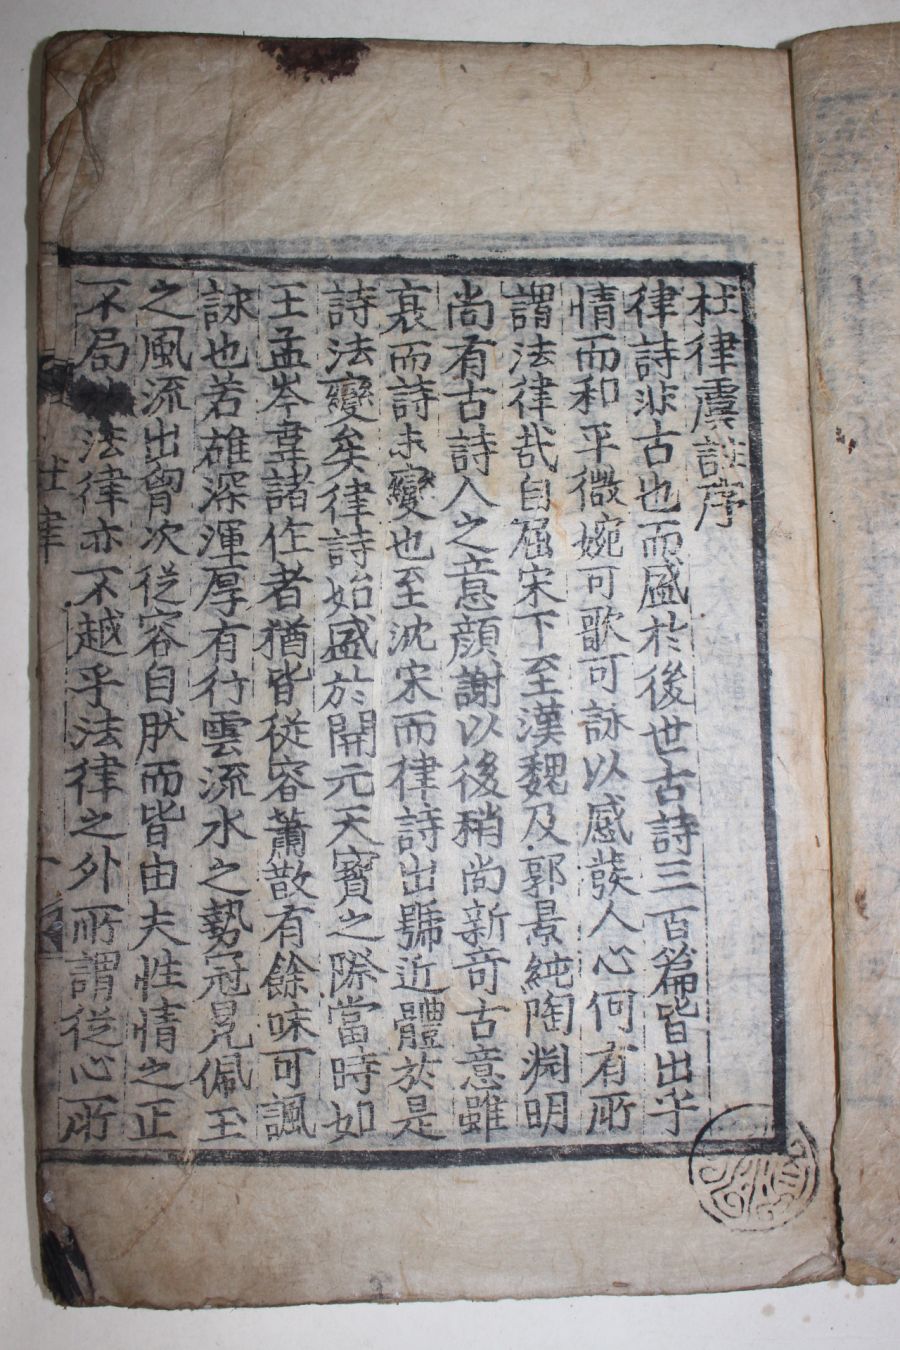 杜律虞註序
律詩非古也而盛於後世古詩三百篇皆出乎
情而和平微婉可歌可詠以感發人心何有所
謂法律哉自屈宋下至漢魏及郭景純陶淵明
尚有古詩人之意顔謝以後稍尚新奇古意雖
衰而詩未變也至沈宋而律詩出號近體於是
詩法變矣律詩始盛於開元天寶之際當時如
王孟岑韋諸作者猶皆從容蕭散有餘味可諷
詠也若雄深渾厚有行雲流水之勢冠冕佩玉
之風流出胷次從容自肰而皆由夫性情之正
不局法律亦不越乎法律之外所謂從心所
杜律